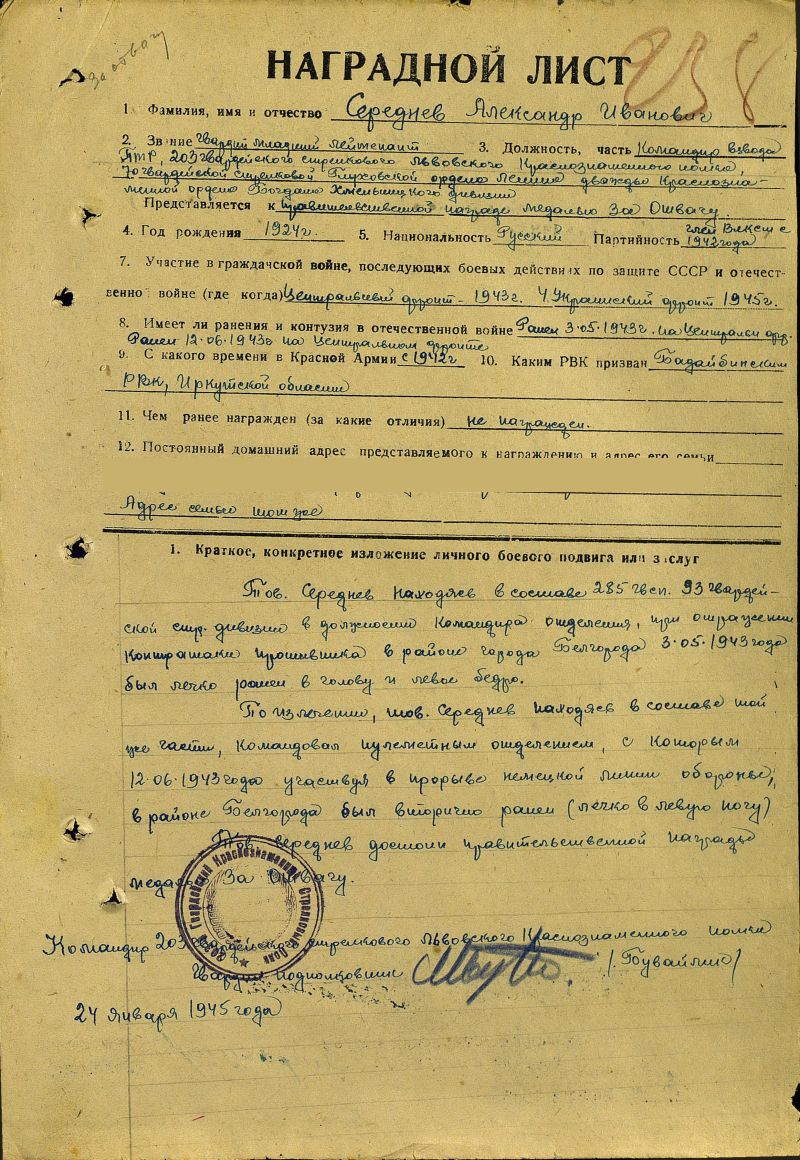 за отвагу
238
НАГРАДНОЙ ЛИСТ
1. Фамилия, имя и отчество Середнев Александр Иванович
2. Звание Гвардии младший лейтенант 3. Должность, часть Командир взвода
ПТР, 203 гвардейского стрелкового Львовского Краснознаменного полка,
70 гвардейской стрелковой Глуховской ордена Ленина дважды Краснозна-
менной ордена Богдана Хмельницкого дивизии
Представляется к правительственной награде медалью За Отвагу.
4. Год рождения 1924г. 5. Национальность Русский Партийность член ВЛКСМ с
1942 года
7. Участие в гражданской войне, последующих боевых действиях по защите СССР и отечест-
венной войне (где когда) Центральный фронт - 1943г. 4. Украинский фронт 1945г.
8. Имеет ли ранения и контузия в отечественной войне Ранен 3.05.1943г. на Централ
Ранен 12.06.1943г на Центральном фронте
9. С какого времени в Красной Армии с 1942г 10. Каким РВК призван Бодайбинским
РВК, Иркутской области
11. Чем ранее награжден (за какие отличия) не награжден.
12. Постоянный домашний адрес представляемого к награждению и адрес его семьи
Адрес семьи тот же
1. Краткое, конкретное изложение личного боевого подвига или заслуг
Тов. Середнев находяев в составе 285 гв сп. 93 гвардей-
ской стр. дивизии в должности командира отделения, при отражении
контратаки противника в районе города Белгорода 3.05.1943 года
был легко ранен в голову и левое бедро.
По излечении, тов. Середнев находяев в составе той
же части, командовал пулеметным отделением, с которым
12.06.1943 года участвуя в прорыве немецкой линии обороны,
в районе Белгорода был вторично ранен (легко в левую ногу)
Тов Середнев достоин правительственной награды
медаль За Отвагу.
Командир 203 гвардейского стрелкового Львовского Краснознаменного полка
Гвардии подполковник /Бувайлик/
24 января 1945 года
Гвардейский Краснознаменный Стрелковый Полк